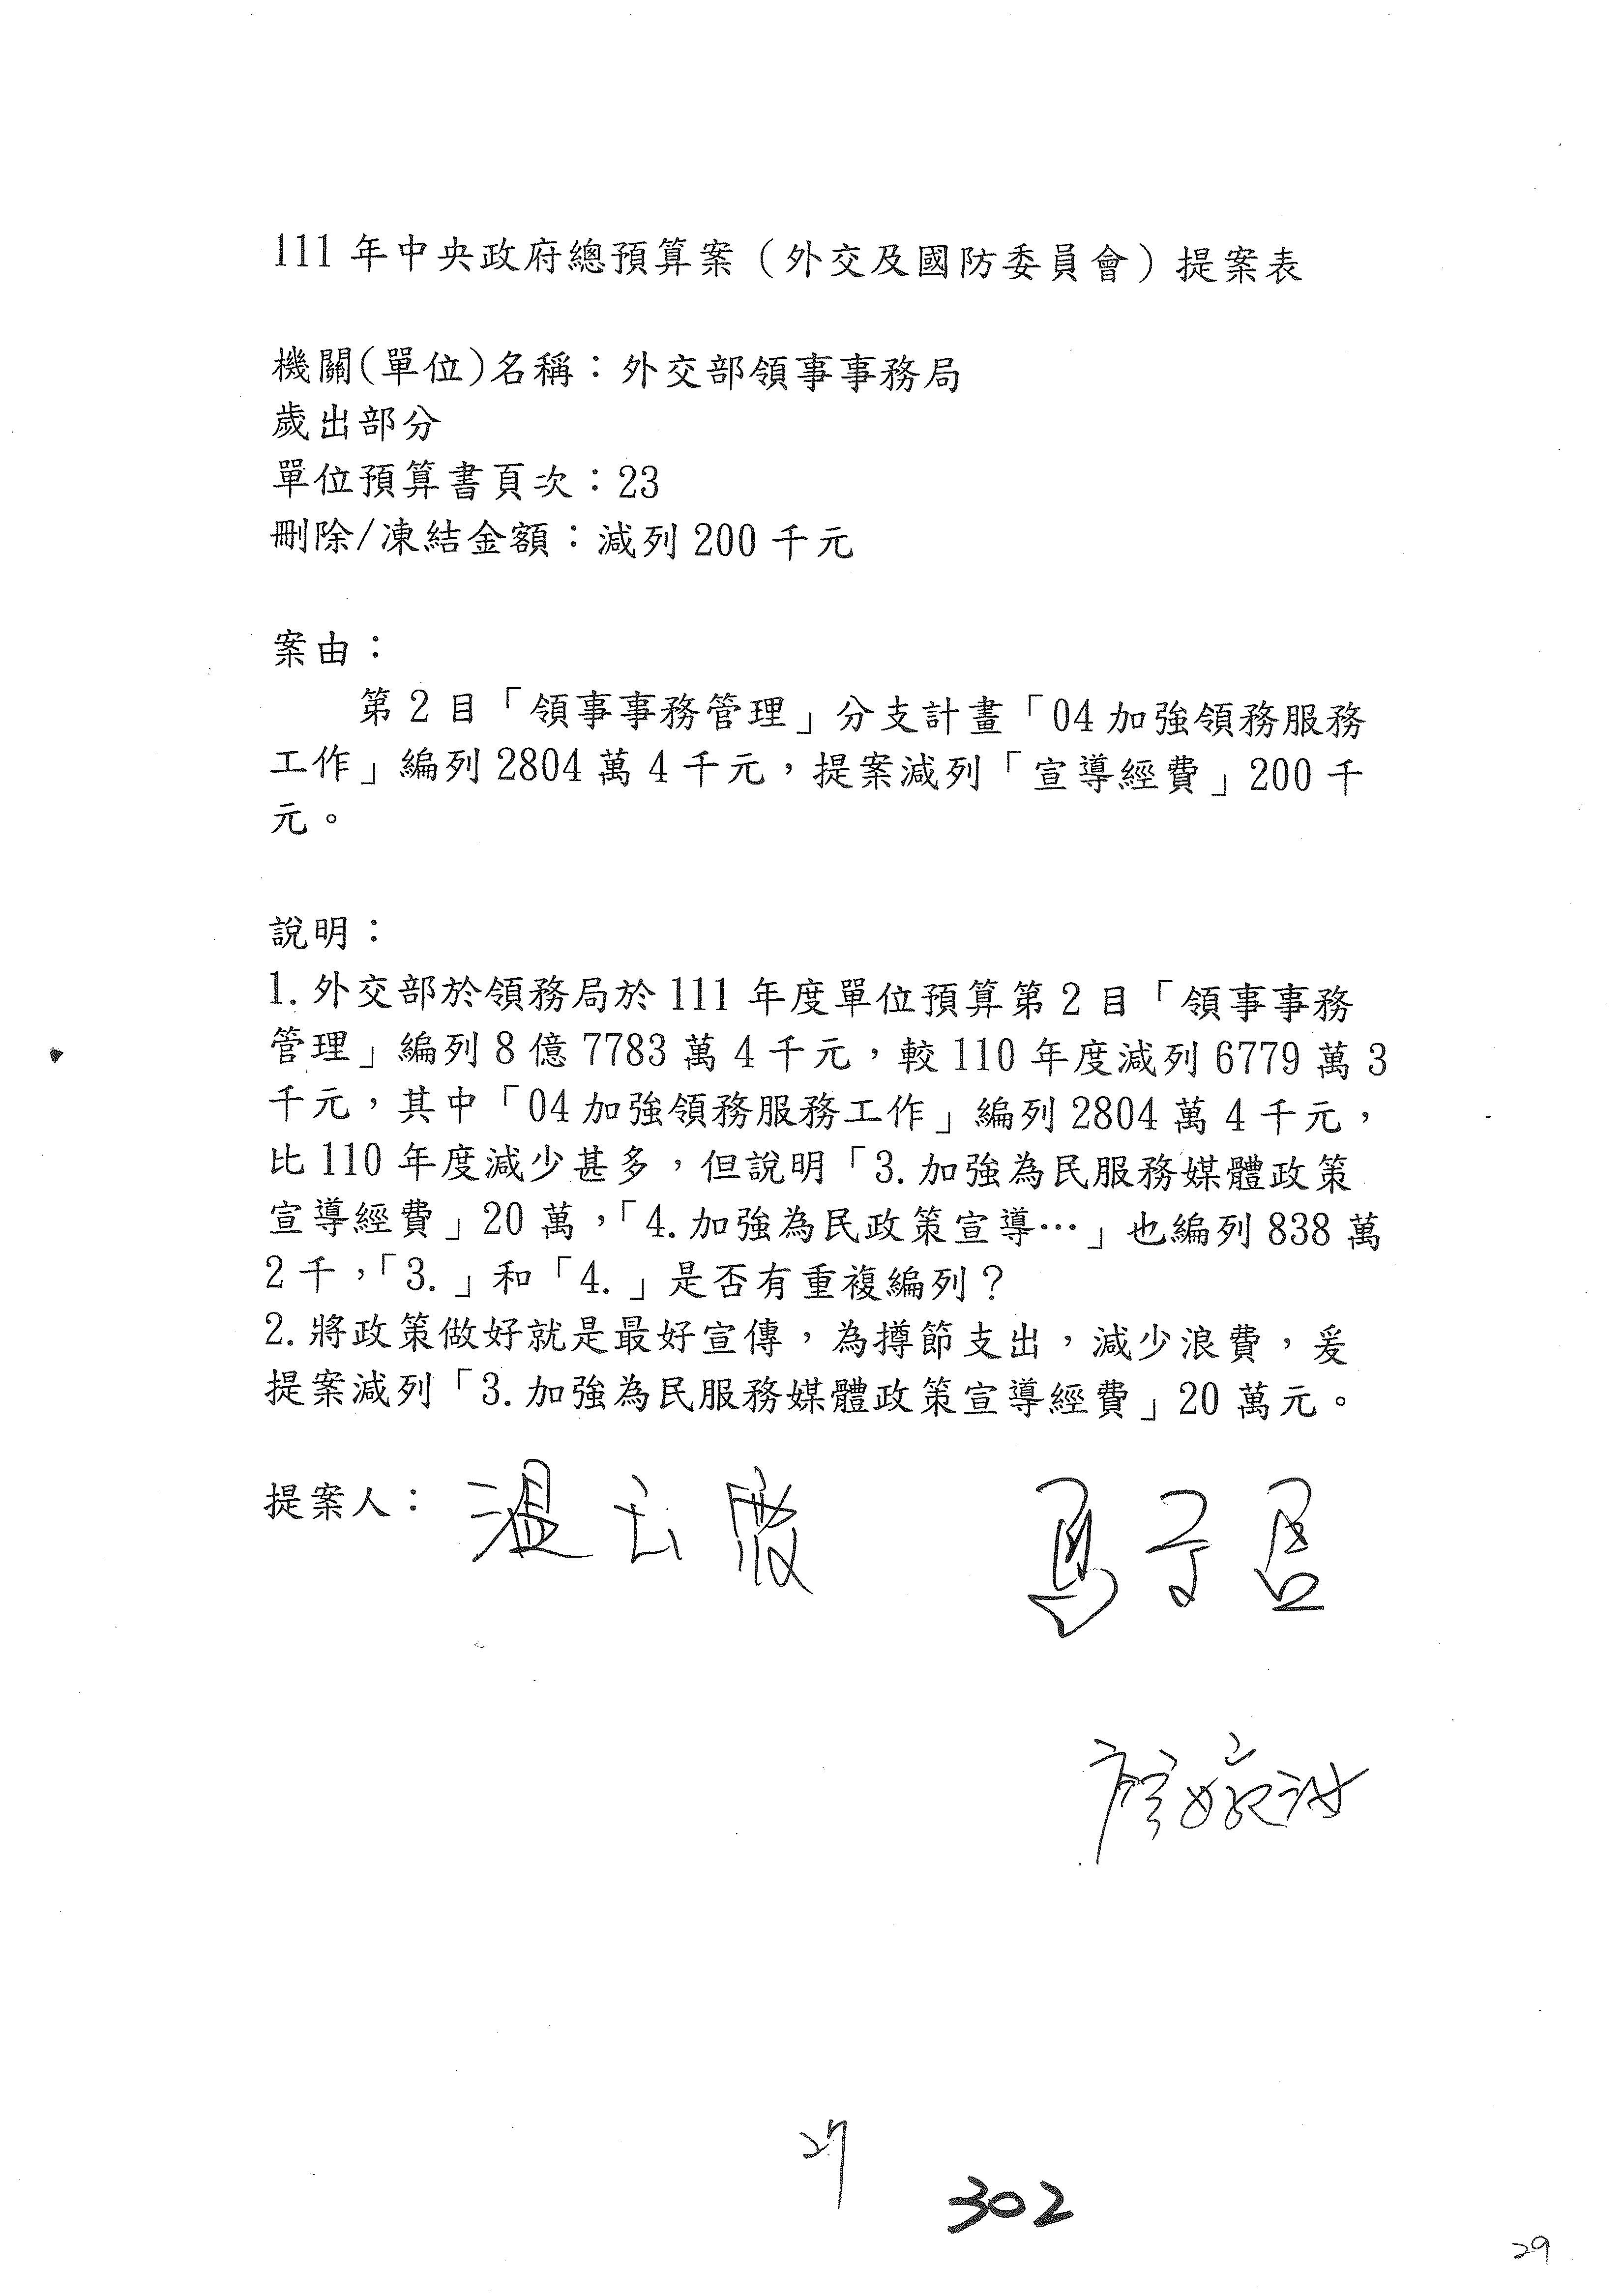 111年中央政府總預算案（外交及國防委員會）提案表
機關(單位)名稱：外交部領事事務局
歲出部分
單位預算書頁次：23
刪除/凍結金額：減列200千元
案由：
第2目「領事事務管理」分支計畫「04加強領務服務
工作」編列2804萬4千元，提案減列「宣導經費」200千
元。
說明：
1.外交部於領務局於111年度單位預算第2目「領事事務
管理」編列8億7783萬4千元，較110年度減列6779萬3
千元，其中「04加強領務服務工作」編列2804萬4千元，
比110年度減少甚多，但說明「3.加強為民服務媒體政策
宣導經費」20萬，「4.加強為民政策宣導…」也編列838萬
2千，「3.」和「4.」是否有重複編列？
2.將政策做好就是最好宣傳，為撙節支出，減少浪費，爰
提案減列「3.加強為民服務媒體政策宣導經費」20萬元。
提案人：溫玉霞 馬文君
廖婉汝
27
302
29